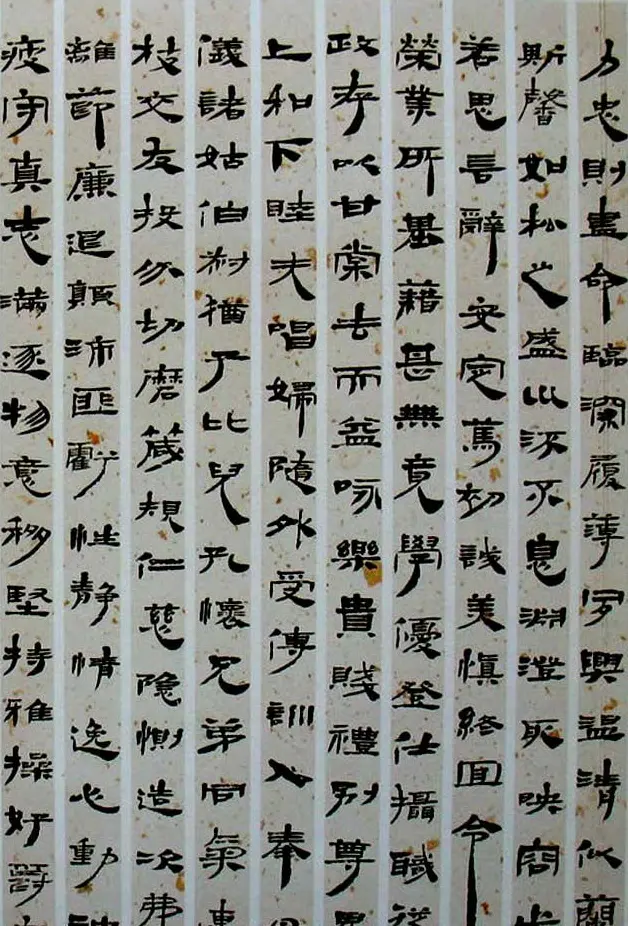 力忠則盡命臨深履薄夙興温清似蘭
斯馨如松之盛川流不息淵澄取映容止
若思言辭安定篤初誠美慎終宜令
榮業所基藉甚無竟學優登仕攝職從
政存以甘棠去而益咏樂貴賤禮別尊卑
上和下睦夫唱婦隨外受傅訓入奉母
儀諸姑伯叔猶子比兒孔懷兄弟同氣連
枝交友投分切磨箴規仁慈隱惻造次弗
離節廉退顛沛匪虧性静情逸心動神
疲守真志滿逐物意移堅持雅操好爵